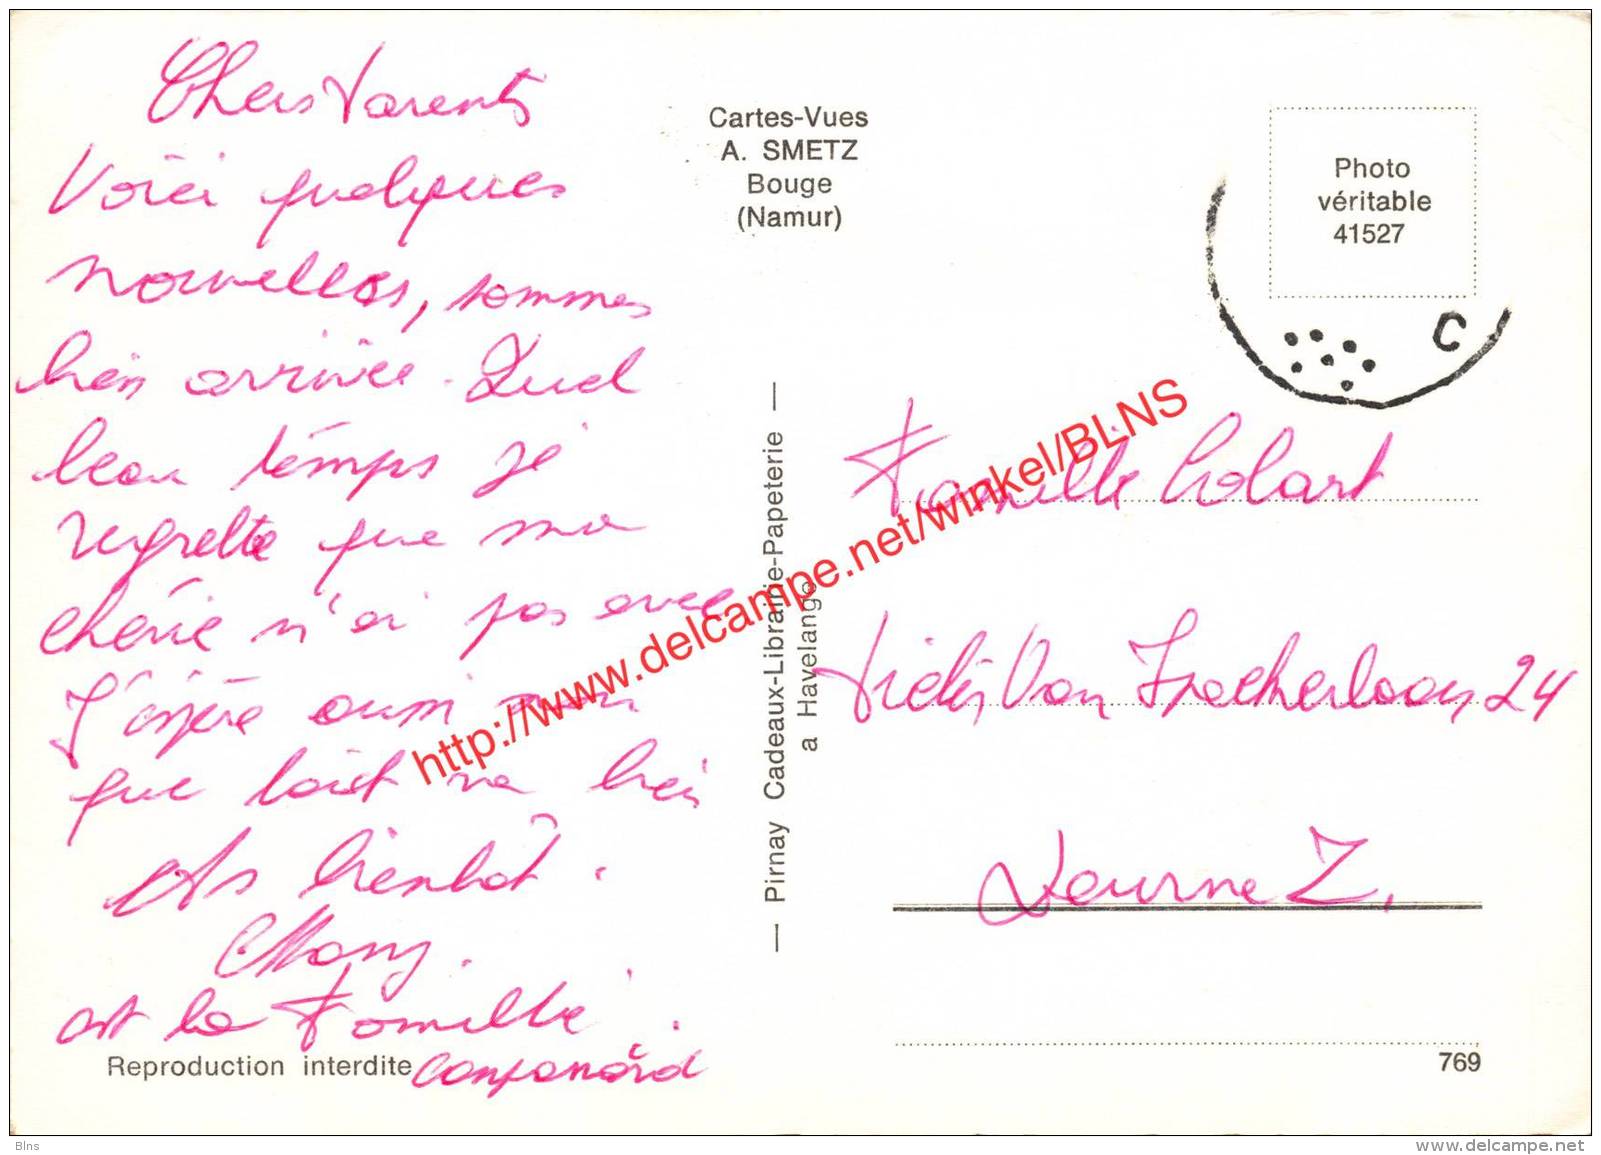 Chers Parents
Voici quelques
nouvelles, sommes
bien arrivée. Quel
beau temps je
regrette que ma
chérie n'ai pas avec
J'espère aussi
que toit va bien
As bientôt.
Mony.
est la Famille
Reproduction interdite
Cartes-Vues
A. SMETZ
Bouge
(Namur)
— Pirnay Cadeaux-Librairie-Papeterie —
a Havelange
Photo
véritable
41527
C
Famille Colart
Van 24
DeurneZ,
769
http://www.delcampe.net/winkel/BLNS
Blns
www.delcampe.net